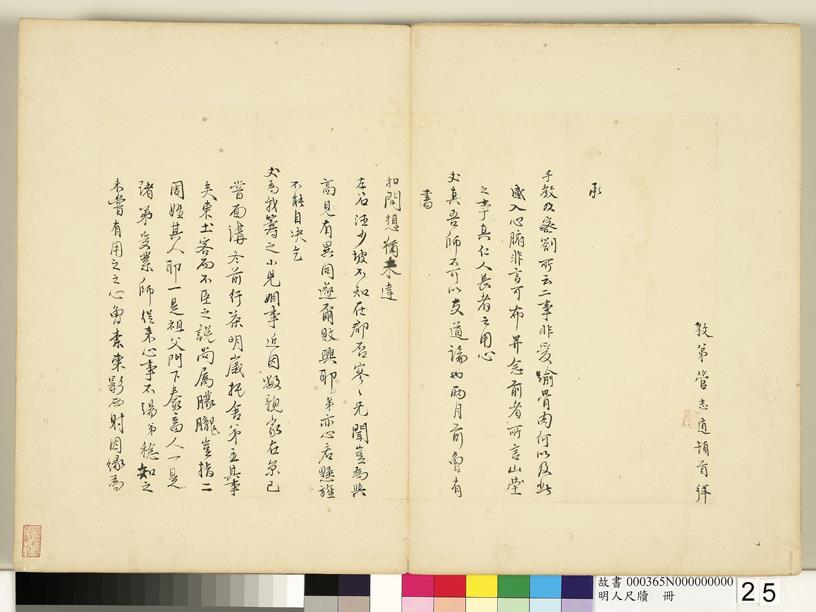 教弟管志道頓首拜
承
手教及密劄所云二事非愛踰骨肉何以及此
感入心腑非言可布并念前者所言山塋
之事真仁人長者之用心
丈真吾師不可以友道論也兩月前曾有
書
扣問想猶未達
左右汪少坡不知在郡否寥寥無聞豈為與
高見有異同遂爾敗興耶弟亦心若懸旌
不能自決乞
丈為我籌之小兒姻事近因敝親家在京已
嘗面講冬前行茶明歲托舍弟主其事
矣東土客而不臣之說尚屬朦朧豈指二
周姓其人耶一是祖父門下泰商人一是
諸弟受業師從來心事不端弟稔知之
未嘗有用之之心魯素東影西射因緣為
故書 000365N000000000
明人尺牘 冊
25